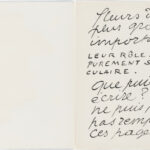 fleurs d
plus gra
import
LEUR RÔLE.
PUREMENT S
CULAIRE.
que puis
écrire?
ne puis
pas remp
ces page